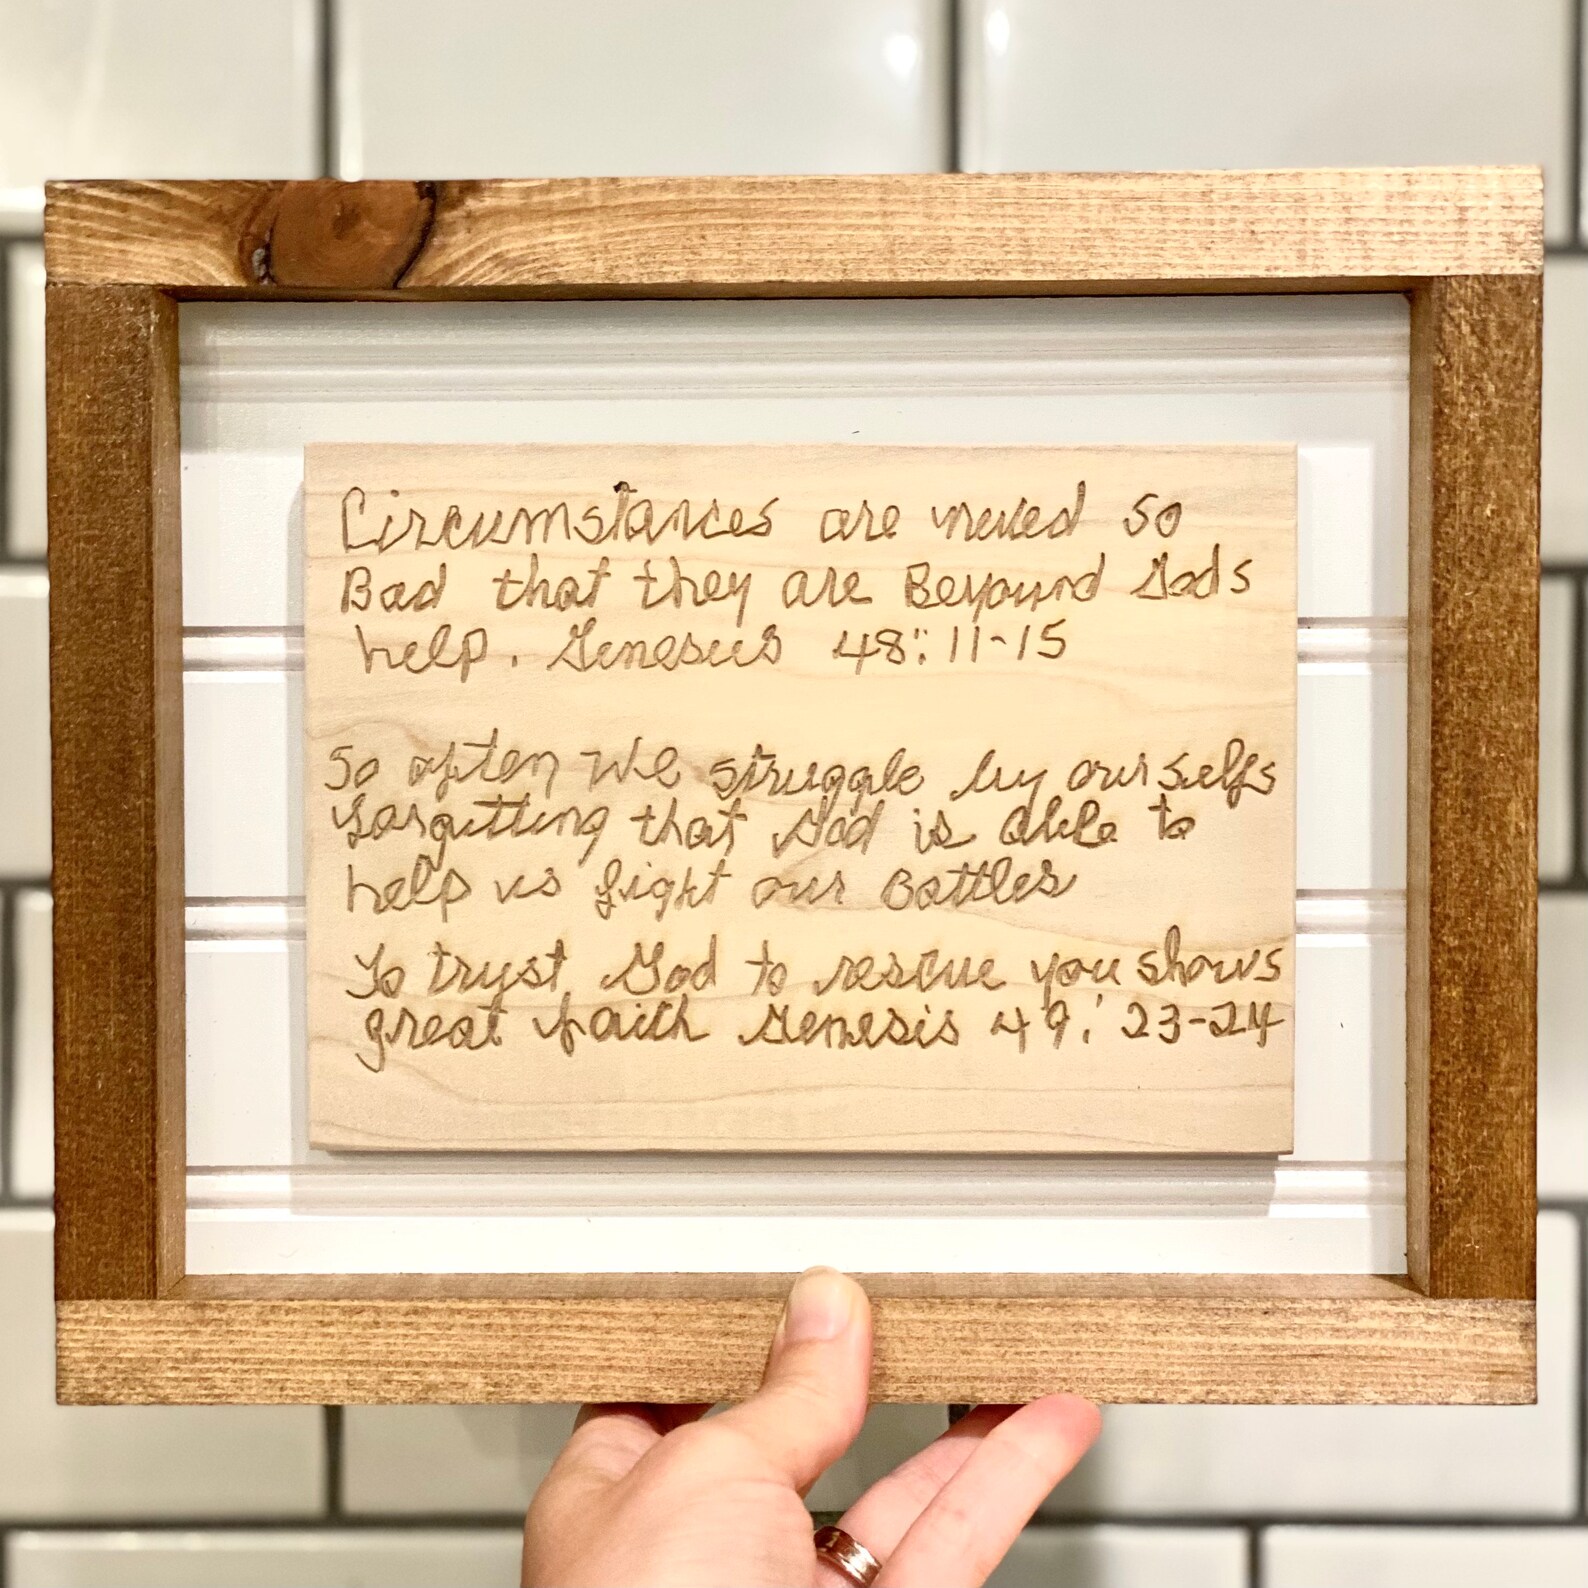 Circumstances are never so
Bad that they are Beyound Gods
help. Genesus 48: 11-15
So often we struggle by our selfs
Forgitting that God is able to
help us fight our Battles
To tryst God to rescue you shows
great faith Genesis 49: 23-24